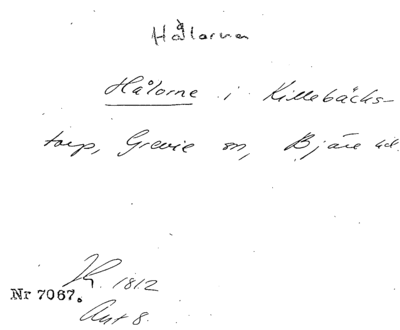 Hålarna
Hålorne i Killebäcks-
torp, Grevie sn, Bjäre hd.
1812
Nr 7067.
Akt 8.